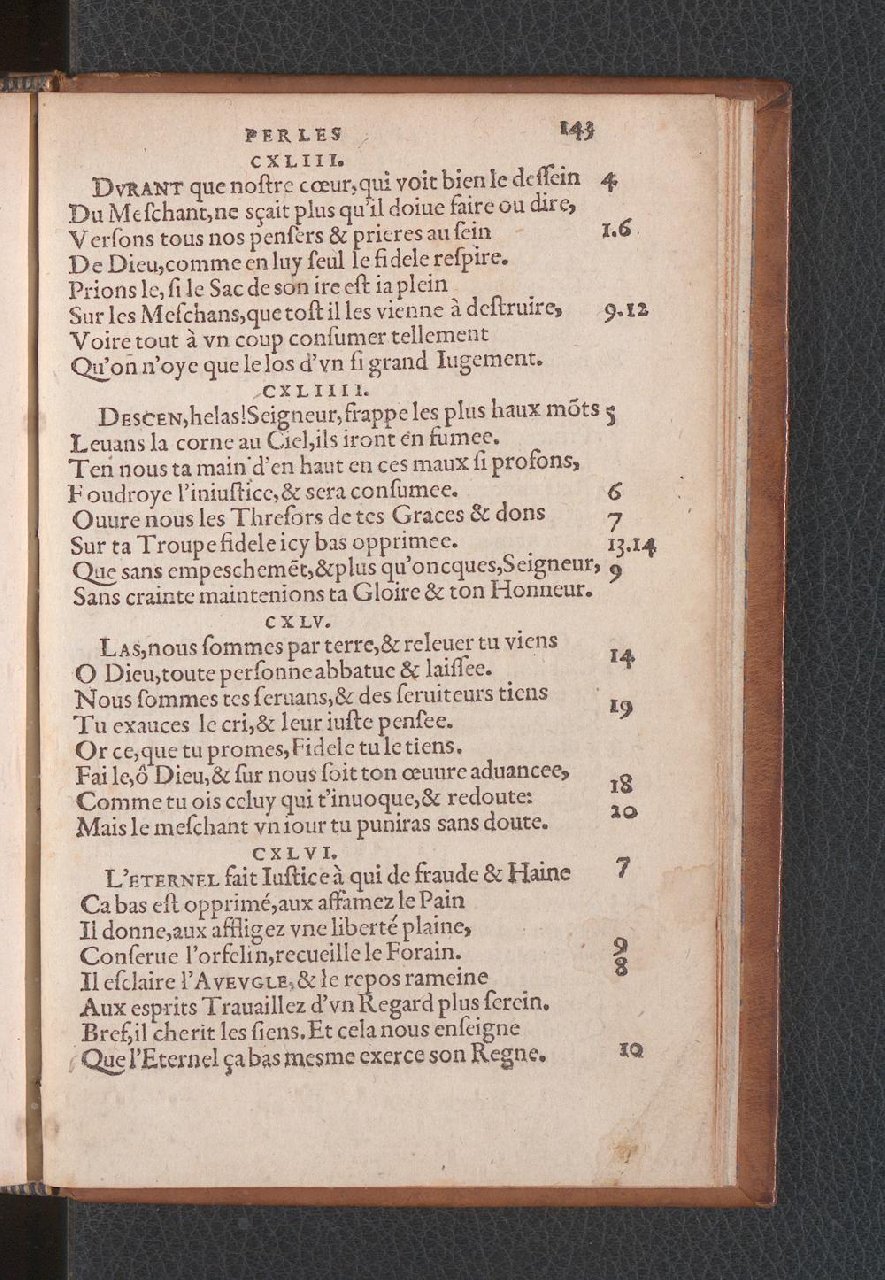 PERLES 143
CXLIII.
DVRANT que noſtre cœur,qui voit bien le deſſein 4
Du Meſchant,ne sçait plus qu'il doiue faire ou dire,
Verſons tous nos penſers & prieres au ſein 1.6
De Dieu,comme en luy ſeul le fidele reſpire.
Prions le, ſi le Sac de son ire eſt ia plein
Sur les Meſchans,que toſt il les vienne à deſtruire, 9.12
Voire tout à vn coup conſumer tellement
Qu'on n'oye que le los d'vn ſi grand Iugement.
CXLIIII.
DESCEN,helas!Seigneur,frappe les plus haux mõts 5
Leuans la corne au Ciel,ils iront en fumee.
Ten nous ta main d'en haut en ces maux ſi profons,
Foudroye l'iniuſtice,& sera conſumee. 6
Ouure nous les Threſors de tes Graces & dons 7
Sur ta Troupe fidele icy bas opprimee. 13.14
Que sans empeschemẽt,&plus qu'oncques,Seigneur, 9
Sans crainte maintenions ta Gloire & ton Honneur.
CXLV.
LAS,nous ſommes par terre,& releuer tu viens
O Dieu,toute perſonne abbatue & laiſſee. 14
Nous ſommes tes ſeruans,& des ſeruiteurs tiens
Tu exauces le cri,& leur iuſte penſee. 19
Or ce,que tu promes,Fidele tu le tiens.
Fai le,ô Dieu,& ſur nous ſoit ton œuure aduancee,
Comme tu ois celuy qui t'inuoque,& redoute: 18
Mais le meſchant vn iour tu puniras sans doute. 20
CXLVI.
L'ETERNEL fait Iuſtice à qui de fraude & Haine 7
Ca bas eſt opprimé,aux affamez le Pain
Il donne,aux affligez vne liberté plaine,
Conſerue l'orfelin,recueille le Forain. 9
Il eſclaire l'AVEVGLE,& le repos rameine 8
Aux esprits Trauaillez d'vn Regard plus ſerein.
Bref,il cherit les ſiens.Et cela nous enſeigne
Que l'Eternel ça bas mesme exerce son Regne. 10